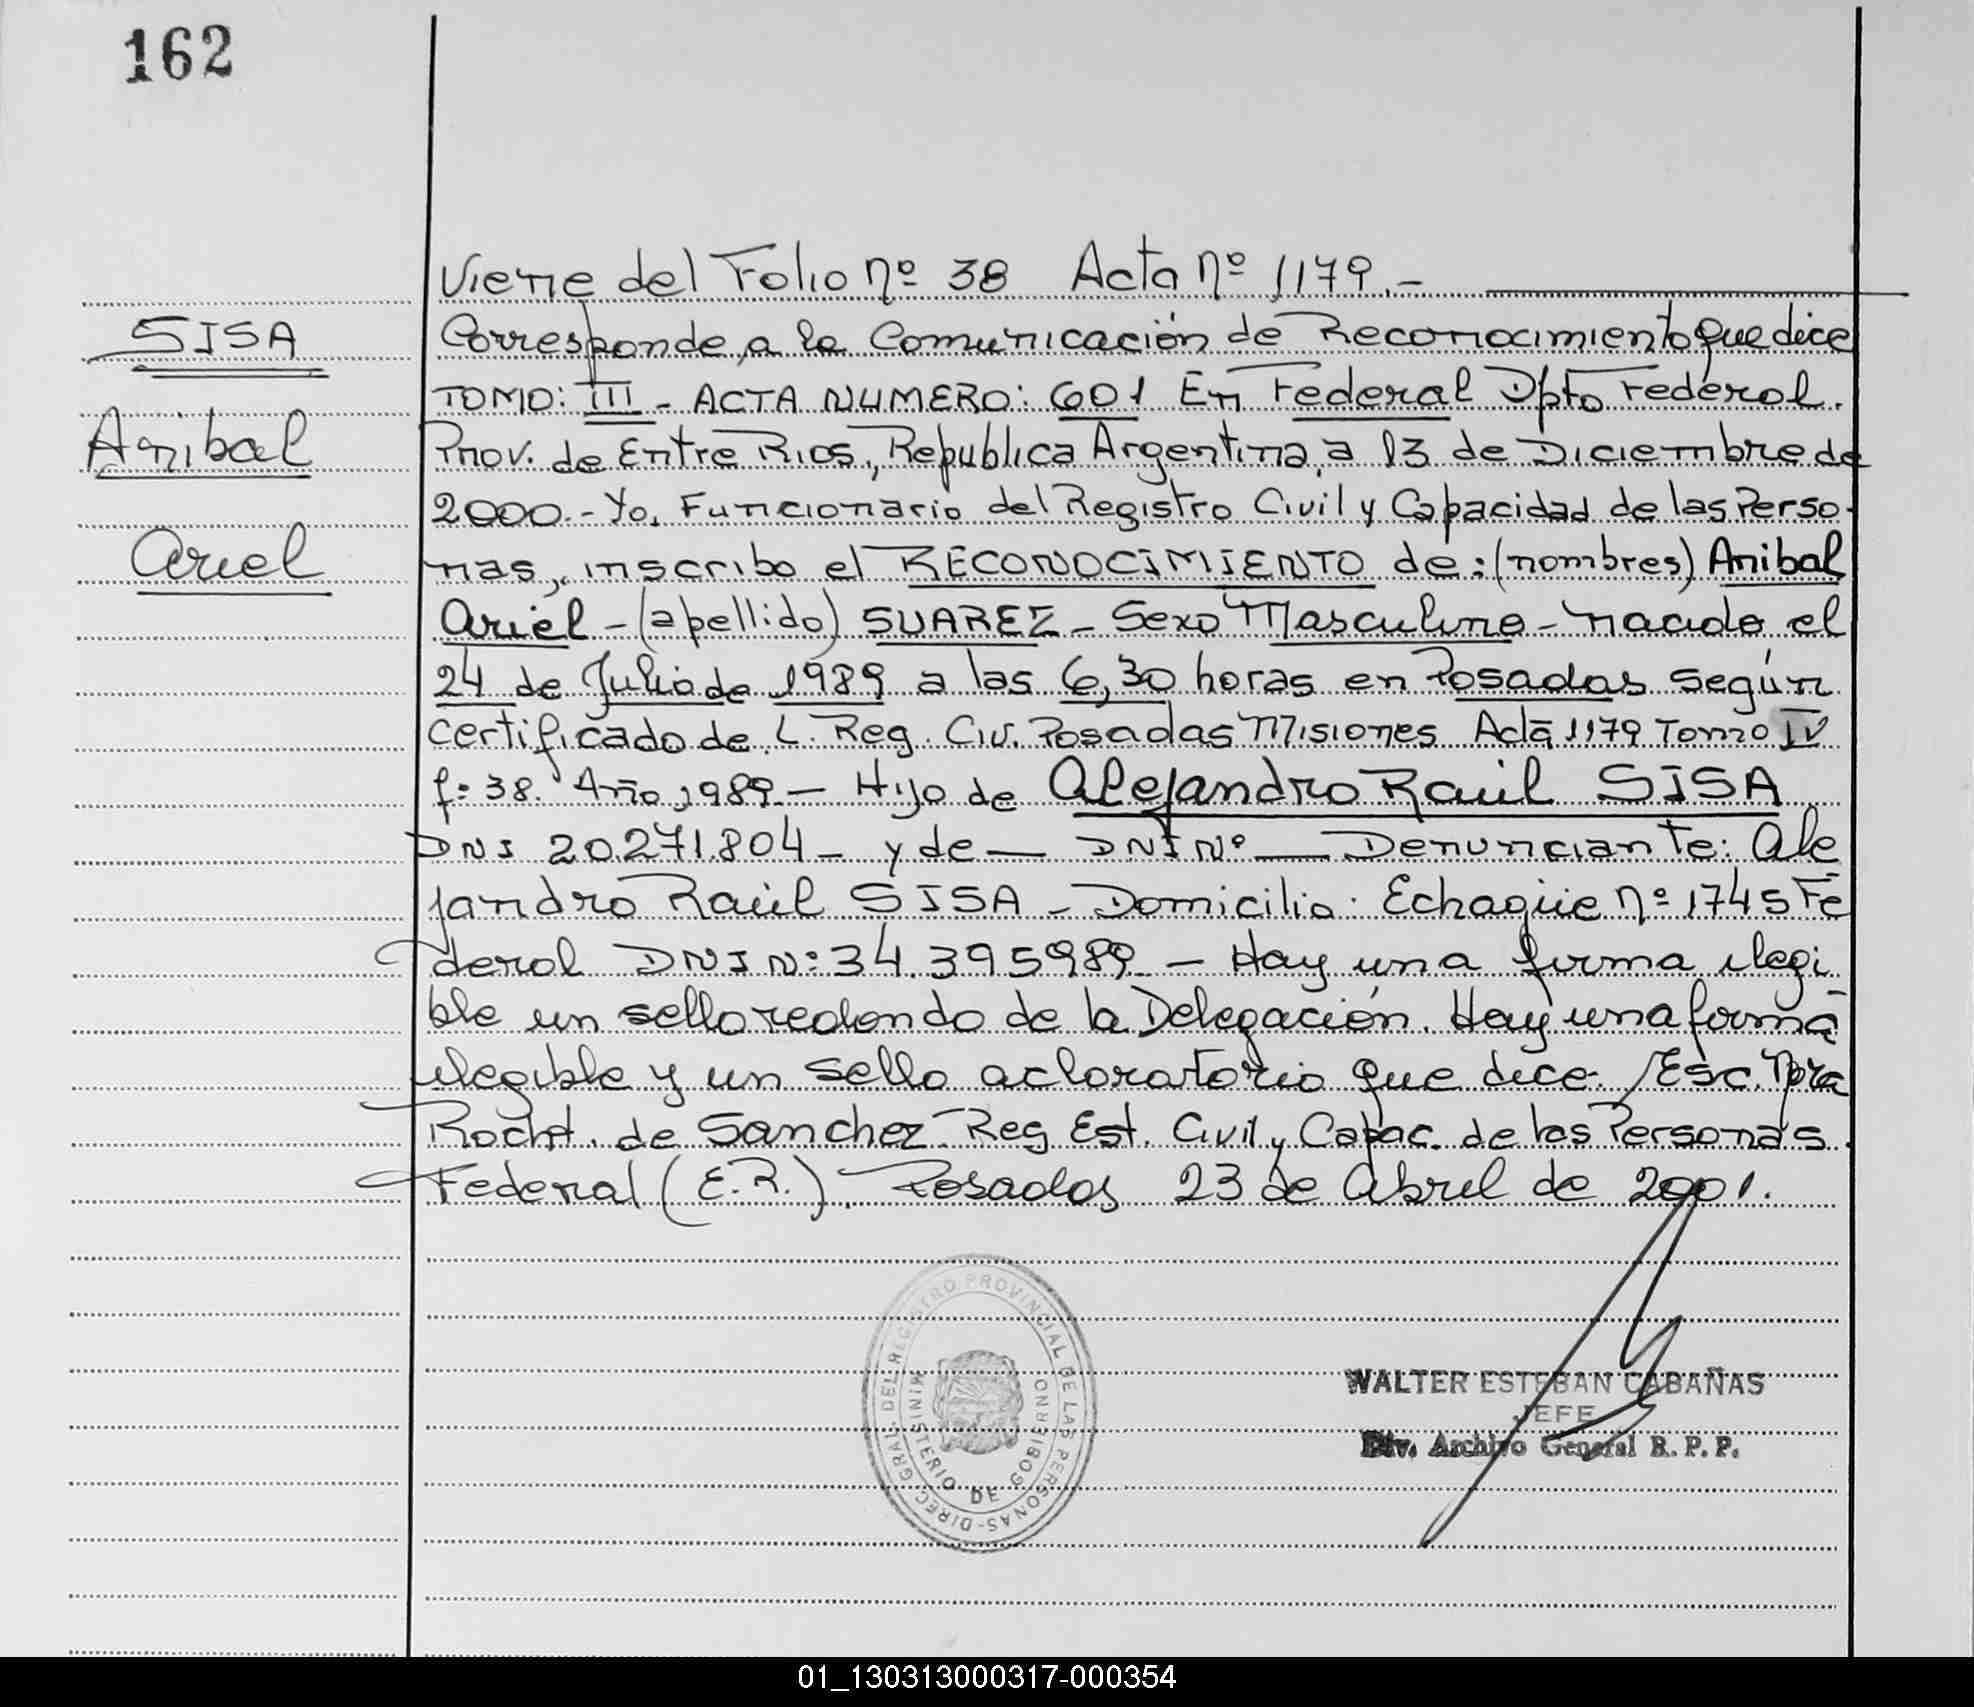 162
Viene del Folio nº 38 Acta nº 1179.-
SISA
Corresponde a la Comunicación de Reconocimiento que dice
TOMO: III - ACTA NUMERO: 601 En Federal Dpto Federal.
Anibal
Prov. de Entre Rios, Republica Argentina, a 13 de Diciembre de
2000.- Yo, Funcionario del Registro Civil y Capacidad de las Perso-
Ariel
nas, inscribo el RECONOCIMIENTO de: (nombres) Anibal
Ariel - (apellido) SUAREZ - Sexo Masculino - nacido el
24 de Julio de 1989 a las 6,30 horas en Posadas según
certificado de L. Reg. Civ. Posadas Misiones Acta 1179 Tomo IV
f: 38. Año 1989 - Hijo de Alejandro Raúl SISA
DNI 20.271.804 - y de — DNI Nº — Denunciante: Ale
jandro Raúl SISA - Domicilio: Echagüe nº 1745 Fe
deral DNI Nº 34.395989 - Hay una firma ilegi
ble un sello redondo de la Delegación. Hay una firma
ilegible y un sello acloratorio que dice: Esc.
de Sanchez Reg Est. Civil y Capac. de las Personas.
Federal (E.R.). Posadas 23 de Abril de 2001.
DIREC. GRAL. DEL REGISTRO PROVINCIAL DE LAS PERSONAS
MINISTERIO DE GOBIERNO
WALTER ESTEBAN CABAÑAS
JEFE
Div. Archivo General R. P. P.
01_130313000317-000354